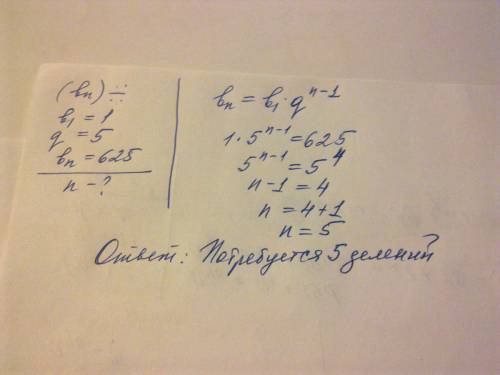 (bn) ÷
b₁ = 1
q = 5
bn = 625
n - ?
bn = b₁ · q^{n-1}
1 · 5^{n-1} = 625
5^{n-1} = 5^4
n - 1 = 4
n = 4 + 1
n = 5
Ответ: Потребуется 5 делений